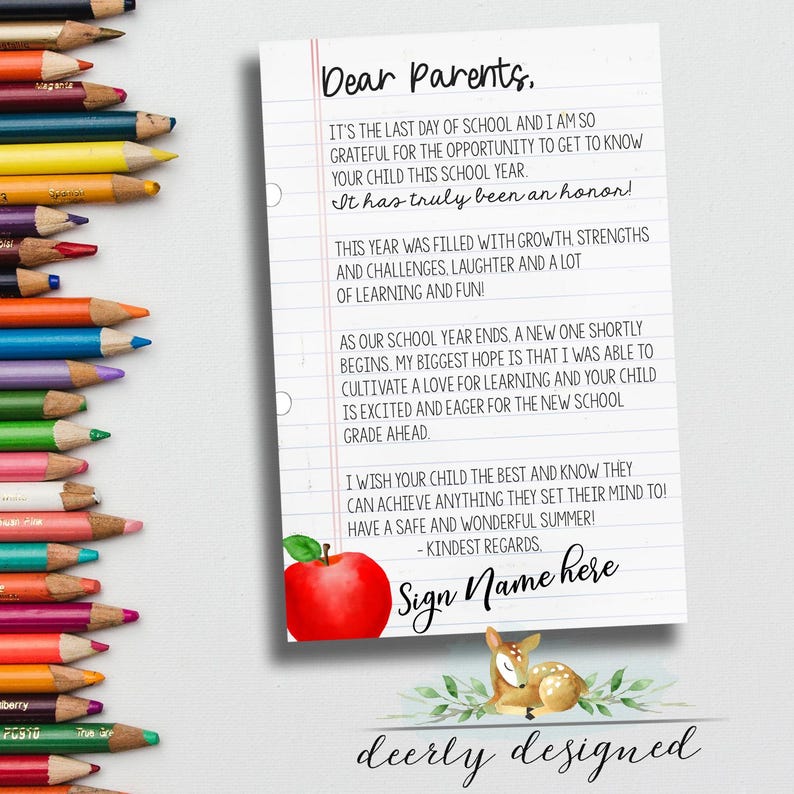 Magenta
Spanish
Blush Pink
PC910
True Gre
Dear Parents,
IT'S THE LAST DAY OF SCHOOL AND I AM SO
GRATEFUL FOR THE OPPORTUNITY TO GET TO KNOW
YOUR CHILD THIS SCHOOL YEAR.
It has truly been an honor!
THIS YEAR WAS FILLED WITH GROWTH, STRENGTHS
AND CHALLENGES, LAUGHTER AND A LOT
OF LEARNING AND FUN!
AS OUR SCHOOL YEAR ENDS, A NEW ONE SHORTLY
BEGINS. MY BIGGEST HOPE IS THAT I WAS ABLE TO
CULTIVATE A LOVE FOR LEARNING AND YOUR CHILD
IS EXCITED AND EAGER FOR THE NEW SCHOOL
GRADE AHEAD.
I WISH YOUR CHILD THE BEST AND KNOW THEY
CAN ACHIEVE ANYTHING THEY SET THEIR MIND TO!
HAVE A SAFE AND WONDERFUL SUMMER!
- KINDEST REGARDS,
Sign Name here
deerly designed